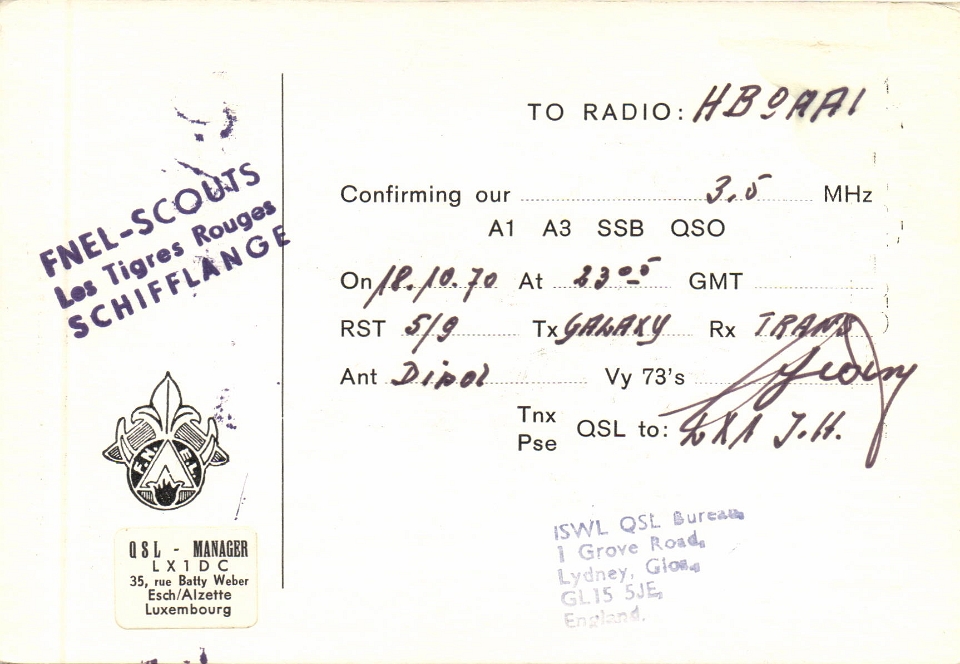 TO RADIO: HB0AA1
Confirming our 3,5 MHz
A1 A3 SSB QSO
On 18.10.70 At 23 05 GMT
RST 5/9 Tx GALAXY Rx TRANS
Ant Dipol Vy 73's
Tnx
Pse QSL to: LX1 J.H.
FNEL-SCOUTS
Les Tigres Rouges
SCHIFFLANGE
F.N.E.L.
QSL - MANAGER
LX1DC
35, rue Batty Weber
Esch/Alzette
Luxembourg
ISWL QSL Bureau,
1 Grove Road,
Lydney, Glos.,
GL15 5JE,
England.